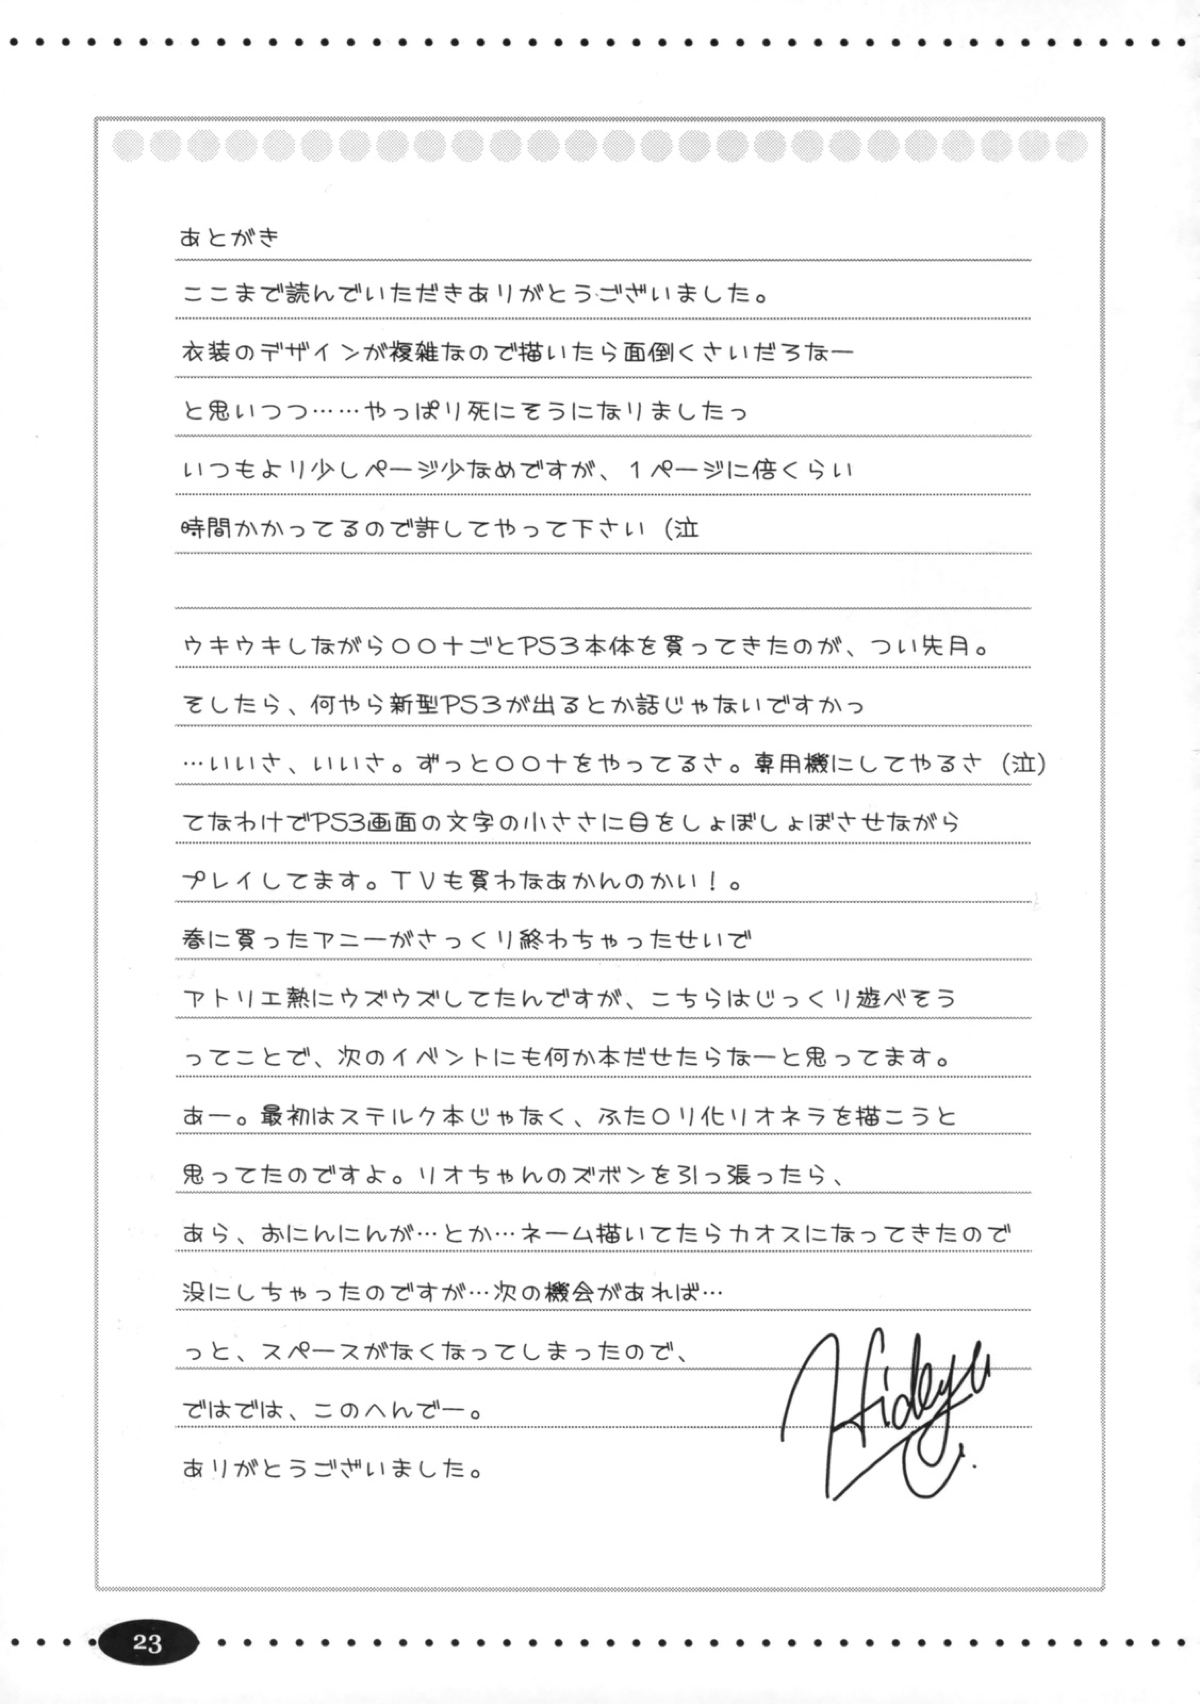 あとがき
ここまで読んでいただきありがとうございました。
衣装のデザインが複雑なので描いたら面倒くさいだろなー
と思いつつ……やっぱり死にそうになりましたっ
いつもより少しページ少なめですが、１ページに倍くらい
時間かかってるので許してやって下さい（泣
ウキウキしながら○○ナごとPS3本体を買ってきたのが、つい先月。
そしたら、何やら新型PS3が出るとか話じゃないですかっ
…いいさ、いいさ。ずっと○○ナをやってるさ。専用機にしてやるさ（泣）
てなわけでPS3画面の文字の小ささに目をしょぼしょぼさせながら
プレイしてます。TVも買わなあかんのかい！。
春に買ったアニーがさっくり終わちゃったせいで
アトリエ熱にウズウズしてたんですが、こちらはじっくり遊べそう
ってことで、次のイベントにも何か本だせたらなーと思ってます。
あー。最初はステルク本じゃなく、ふた○リ化リオネラを描こうと
思ってたのですよ。リオちゃんのズボンを引っ張ったら、
あら、おにんにんが…とか…ネーム描いてたらカオスになってきたので
没にしちゃったのですが…次の機会があれば…
っと、スペースがなくなってしまったので、
ではでは、このへんでー。
ありがとうございました。
Hideyu
23